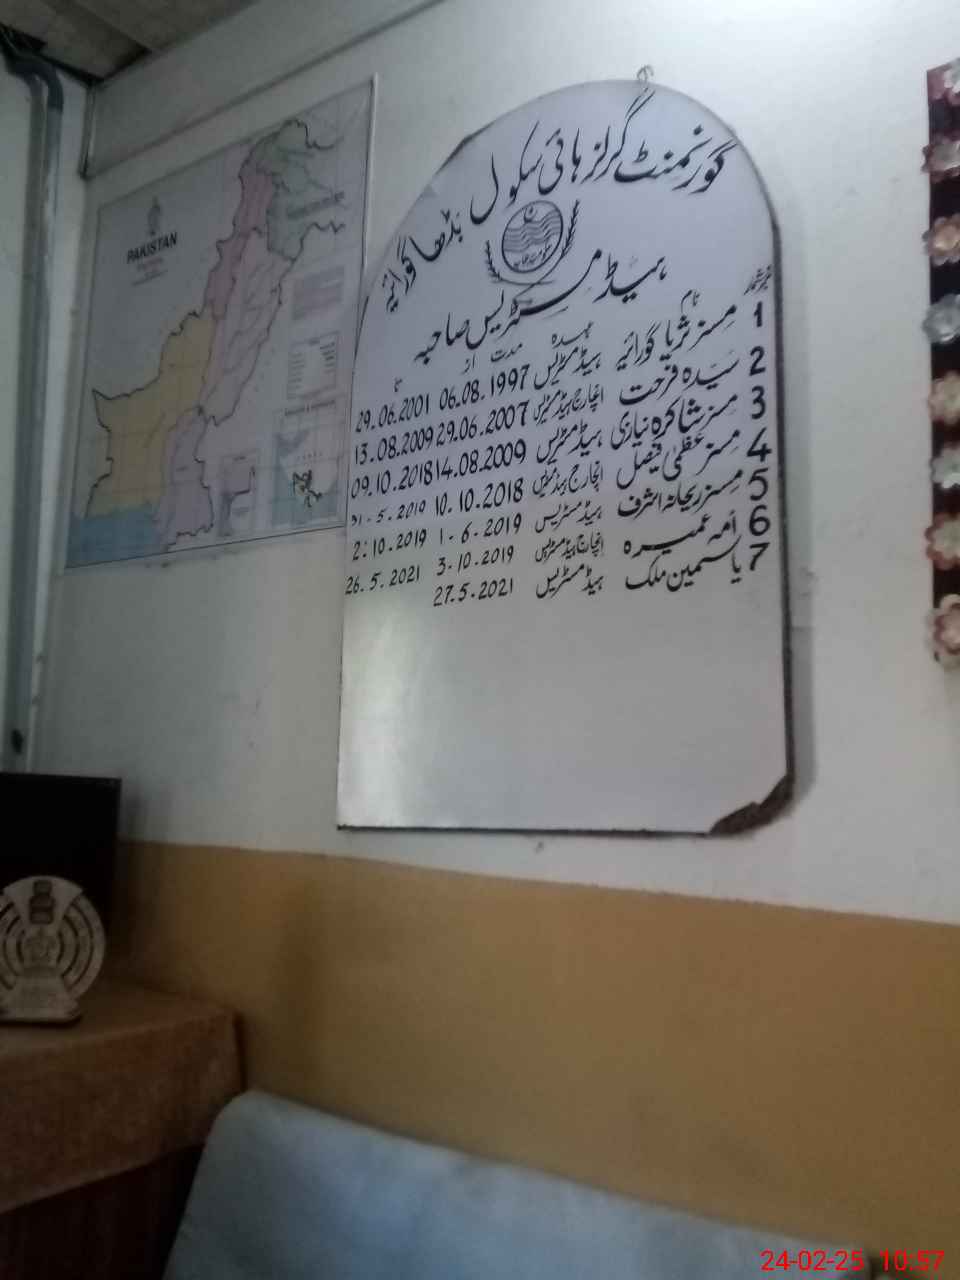 PAKISTAN
گورنمنٹ گرلز ہائی سکول بڈھا گورائیہ
ہیڈ مسٹریس صاحبہ
نمبر شمار نام عہدہ مدت از تا
1 مسز ثریا گورائیہ ہیڈمسٹریس 06.08.1997 29.06.2001
2 سیدہ فرحت انچارج ہیڈمسٹریس 29.06.2007 13.08.2009
3 مسز شاکرہ نیازی ہیڈمسٹریس 14.08.2009 09.10.2018
4 مسز عظمیٰ فیصل انچارج ہیڈمسٹریس 10.10.2018 31-5-2019
5 مسز ریحانہ اشرف ہیڈمسٹریس 1-6-2019 2.10.2019
6 آمہ عمیرہ انچارج ہیڈمسٹریس 3-10-2019 26.5.2021
7 یاسمین ملک ہیڈمسٹریس 27.5.2021
24-02-25 10:57